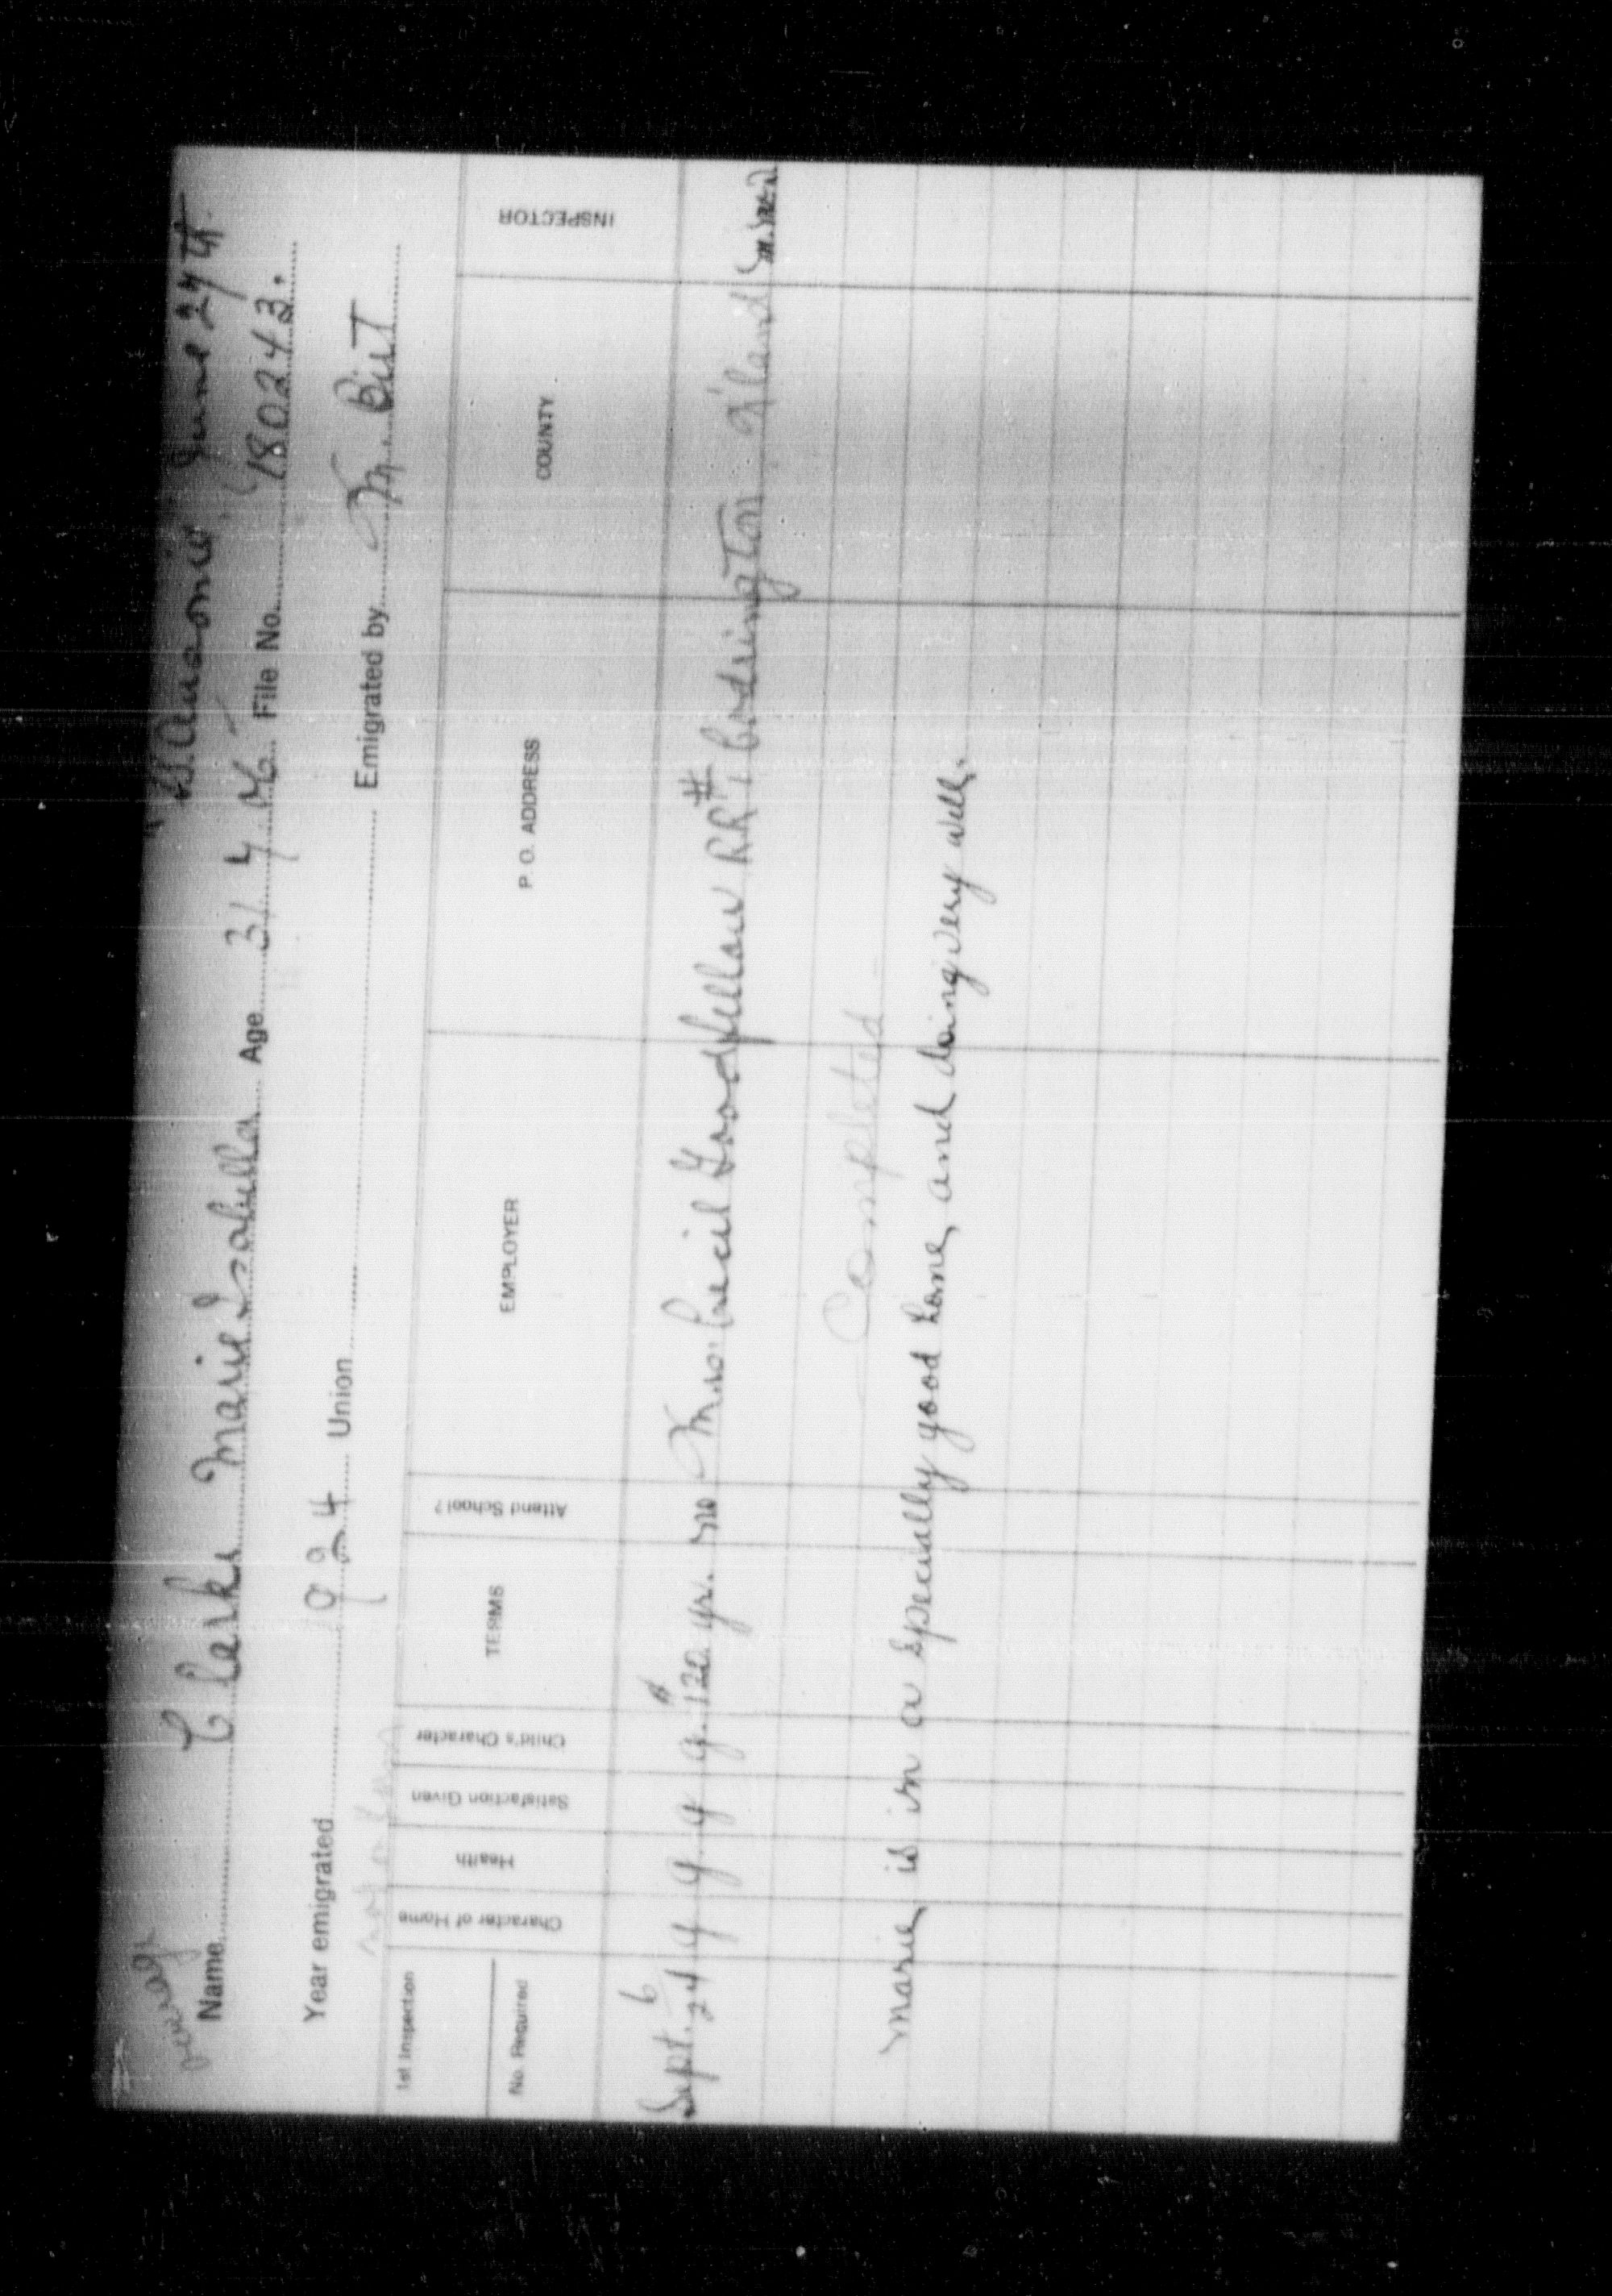 "Ausonia" June 27th
Name Clerks Marie Isabella Age 31 File No. 180243.
Year emigrated 1924 Union Emigrated by M. Birt
1st Inspection
No. Required
Character of Home Health Satisfaction Given Child's Character TERMS Attend School? EMPLOYER P. O. ADDRESS COUNTY INSPECTOR
Sept. 6/24 g g g g $120 yr. no Mrs. Cecil Goodfellow RR#1 Codrington N'land
Completed
Marie, is in a specially good home, and doing very well.